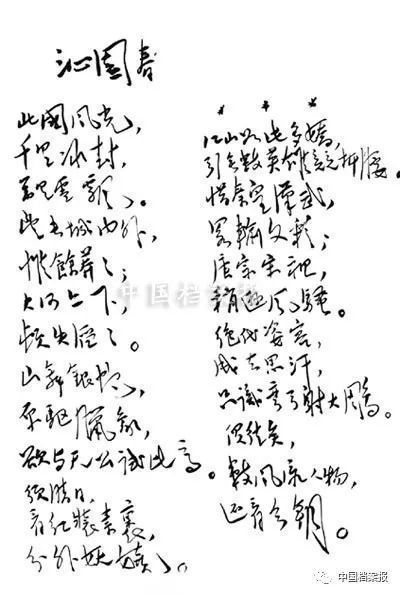 沁園春
北國风光，
千里冰封，
万里雪飘。
望长城内外，
惟餘莽々；
大河上下，
顿失滔々。
山舞银蛇，
原驱臘象，
欲与天公试比高。
须晴日，
看红装素裹，
分外妖娆。
* * *
江山如此多嬌，
引无数英雄竞折腰。
惜秦皇漢武，
略输文彩；
唐宗宋祖，
稍逊风骚。
成吉思汗，
只识弯弓射大雕。
俱往矣，
数风流人物，
还看今朝。
中国档案报
中国档案报